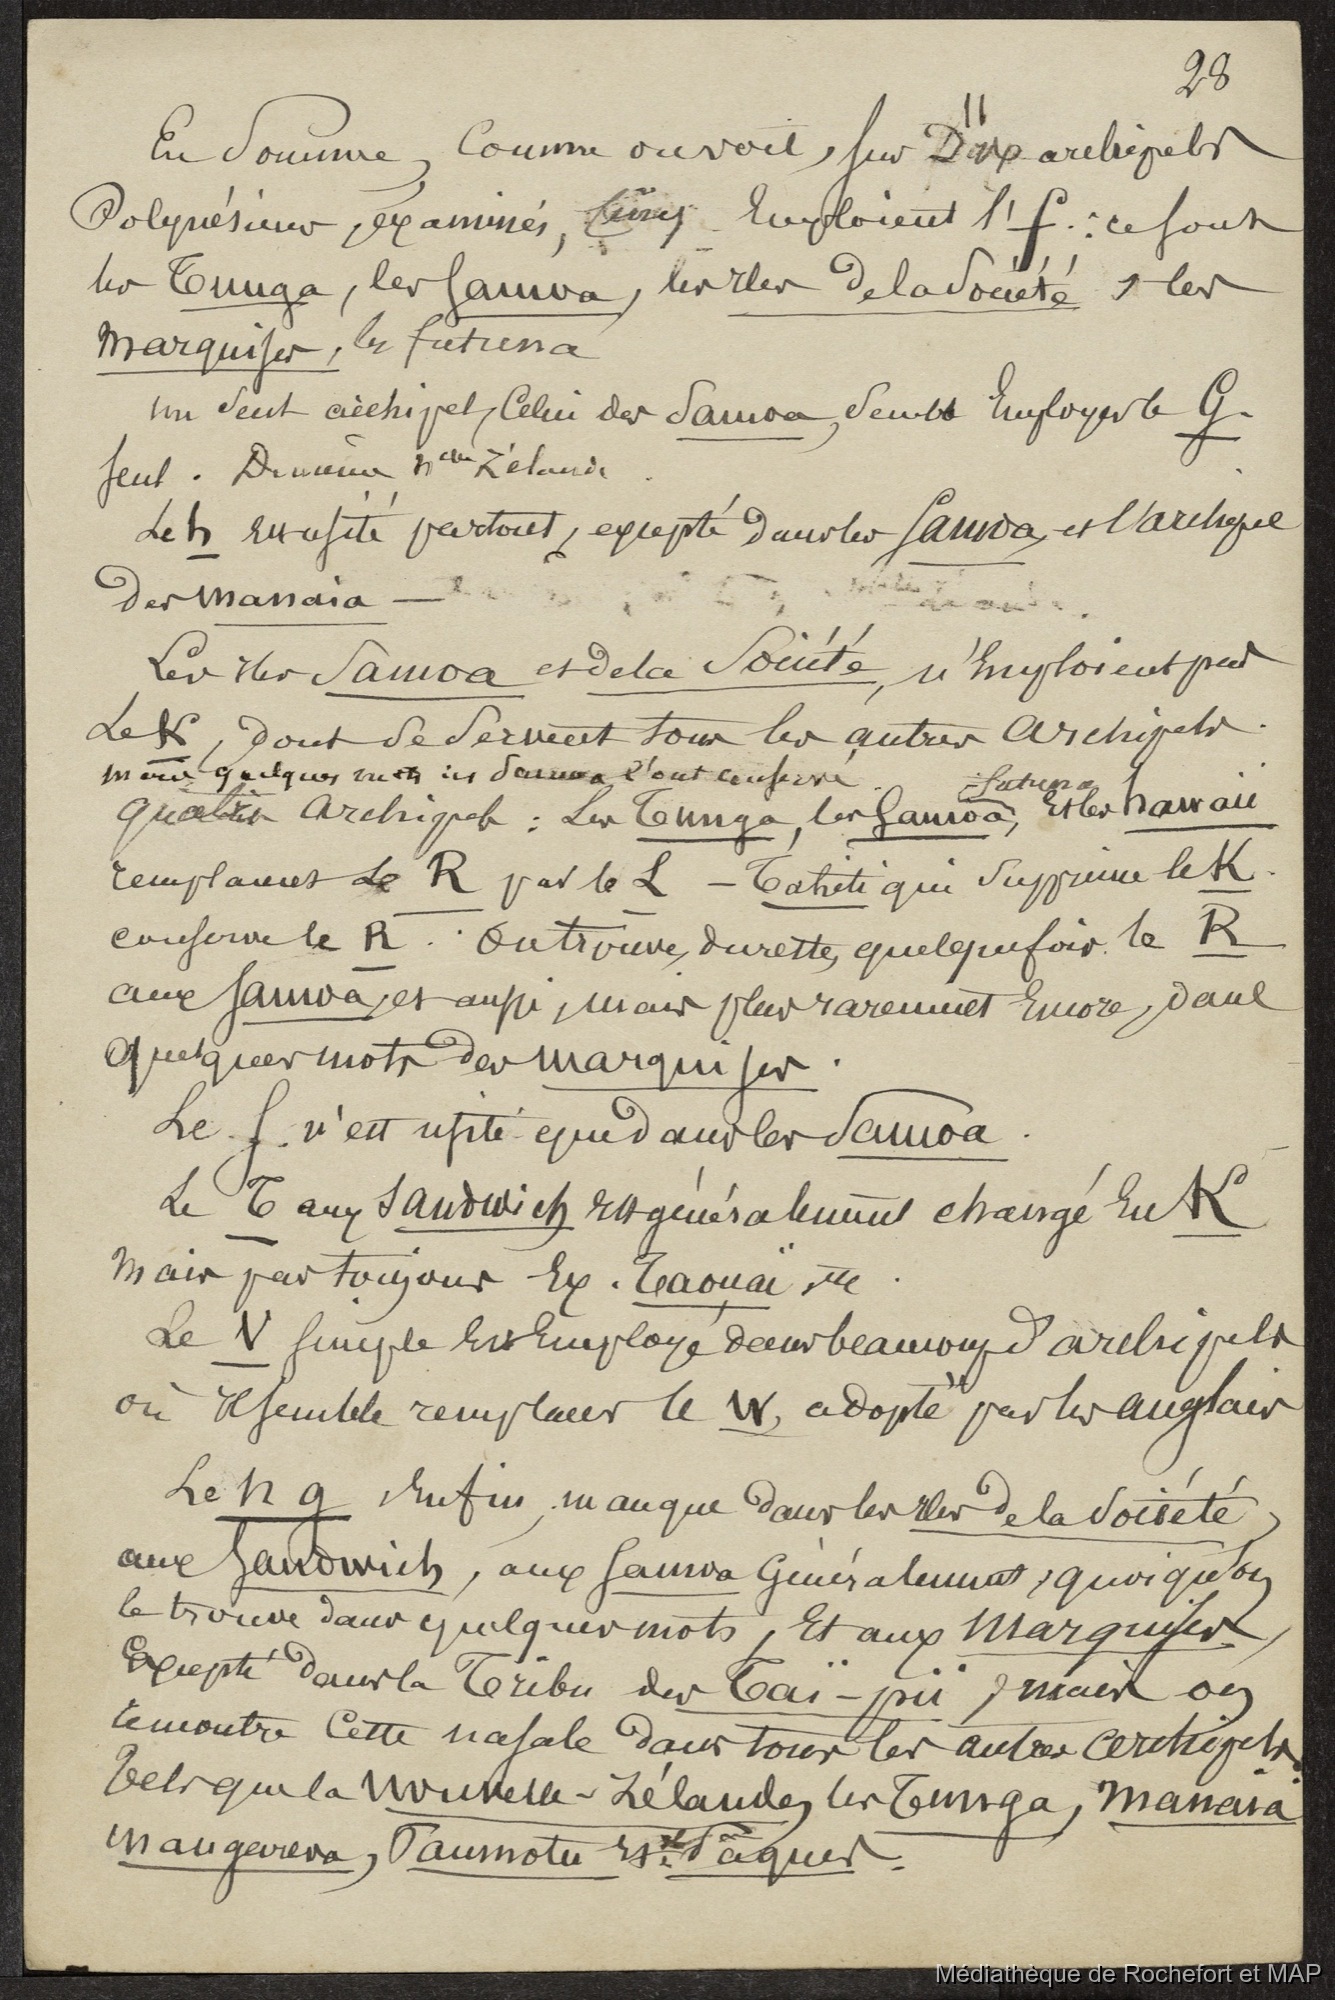 28
En Somme, Comme on voit, sur Dix 11 archipels
Polynésiens, examinés, Cinq Emploient l'f. : ce sont
les Tunga, les Samoa, les Iles de la Société, les
Marquises, les futuna
un seul archipel, Celui des Samoa, semble Employer le G.
seul. De même Nlle Zélande.
Le h est usité partout, excepté dans les Samoa, et l'archipel
des Manaia —
Les Iles Samoa et de la Société, n'Emploient pas
Le K, dont se servent tous les autres Archipels.
mais quelques mots des Samoa l'ont conservé.
Quatre Archipels : Les Tunga, les Samoa, futuna, Et les hawaii
remplacent Le R par le L — Tahiti qui supprime le K.
conserve le R. On trouve, du reste, quelquefois le R
aux Samoa, et aussi, mais plus rarement Encore, dans
quelques mots des Marquises.
Le f. n'est usité que dans les Samoa.
Le T aux Sandwich est généralement changé En K
Mais pas toujours Ex. Taouaï etc.
Le V simple Est Employé dans beaucoup d'archipels
où il semble remplacer le W, adopté par les anglais
Le n g, Enfin, manque dans les Iles de la Société,
aux Sandwich, aux Samoa Généralement, quoiqu'on
le trouve dans quelques mots, Et aux Marquises,
Excepté dans la Tribu des Taï-pii, mais on
rencontre Cette nasale dans tous les autres archipels
Tels que la Nouvelle-Zélande, les Tunga, Manaia
Mangareva, Paumotu et I. Pâques.
Médiathèque de Rochefort et MAP